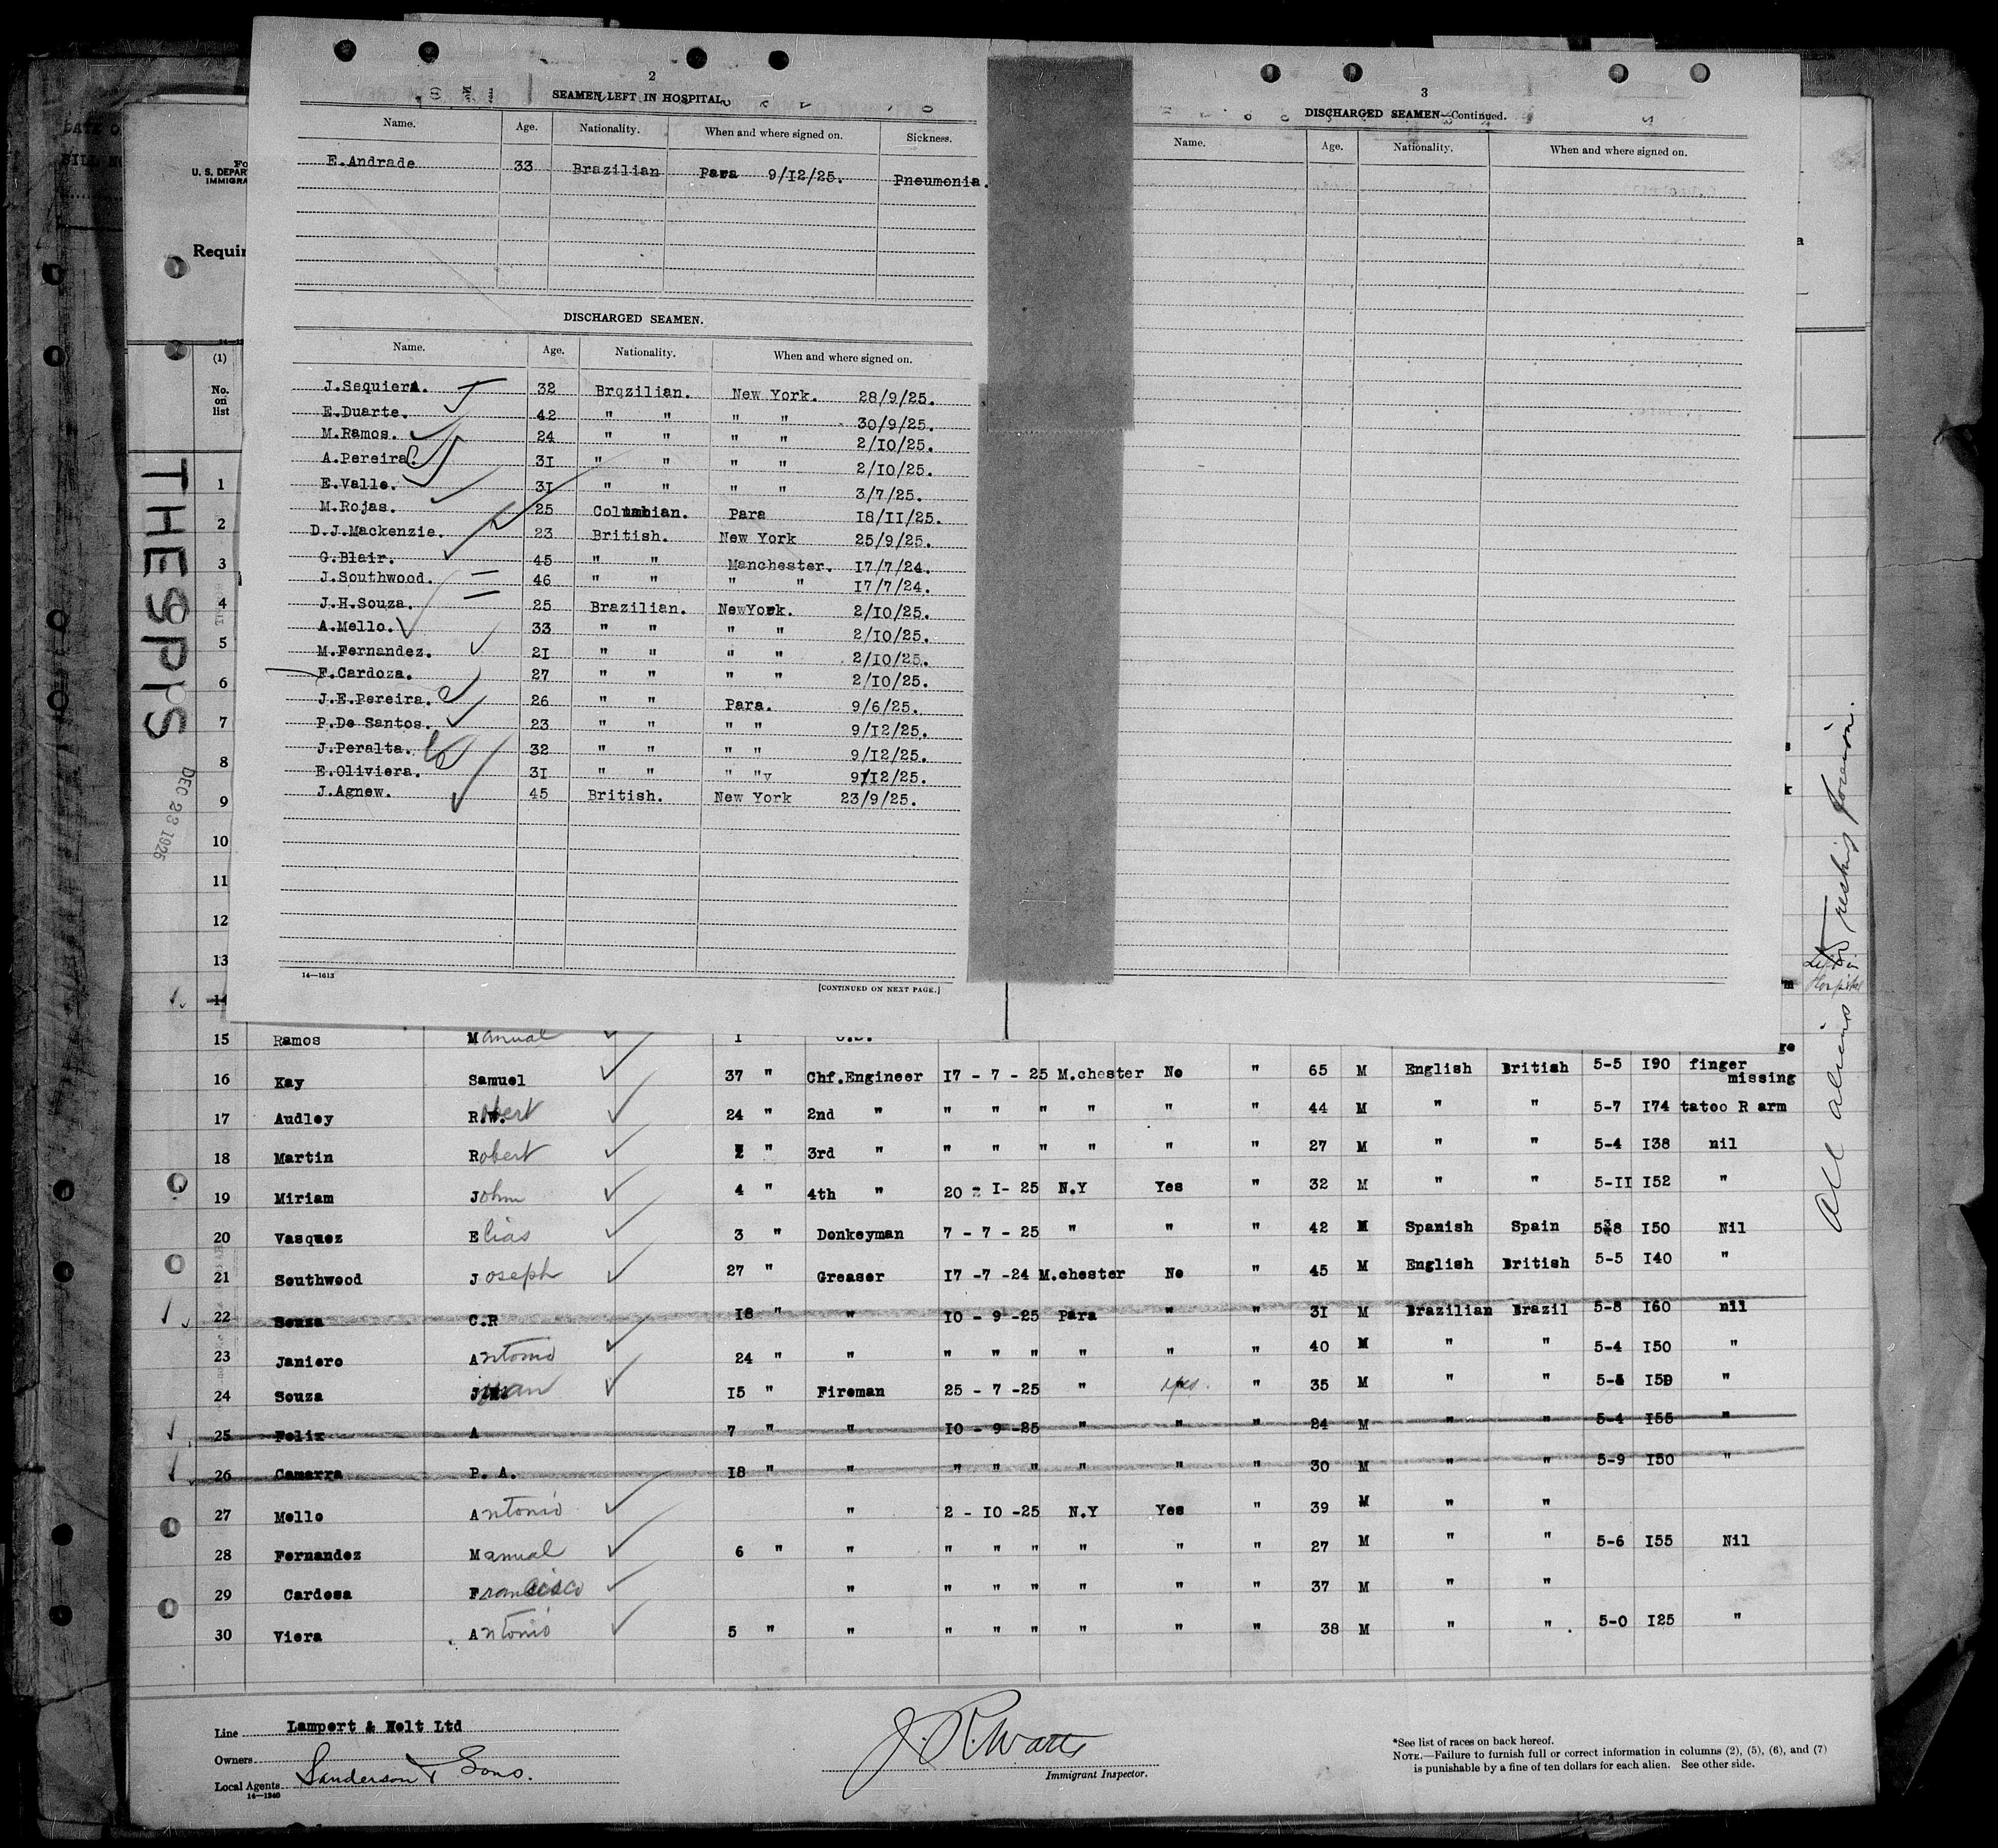 2
SEAMEN LEFT IN HOSPITAL
Name. Age. Nationality. When and where signed on. Sickness.
E.Andrade 33 Brazilian Para 9/12/25. Pneumonia.
DISCHARGED SEAMEN.
Name. Age. Nationality. When and where signed on.
J.Sequiera. 32 Brozilian. New York. 28/9/25.
E.Duarte. 42 " " " " 30/9/25.
M.Ramos. 24 " " " " 2/10/25.
A.Pereira. 31 " " " " 2/10/25.
E.Valle. 31 " " " " 3/7/25.
M.Rojas. 25 Columbian. Para 18/11/25.
D.J.Mackenzie. 23 British. New York 25/9/25.
G.Blair. 45 " " Manchester. 17/7/24.
J.Southwood. 46 " " " " 17/7/24.
J.H.Souza. 25 Brazilian. NewYork. 2/10/25.
A.Mello. 33 " " " " 2/10/25.
M.Fernandez. 21 " " " " 2/10/25.
F.Cardoza. 27 " " " " 2/10/25.
J.E.Pereira. 26 " " Para. 9/6/25.
P.De Santos. 23 " " " " 9/12/25.
J.Peralta. 32 " " " " 9/12/25.
E.Oliviera. 31 " " " "v 9/12/25.
J.Agnew. 45 British. New York 23/9/25.
14—1613
[CONTINUED ON NEXT PAGE.]
3
DISCHARGED SEAMEN—Continued.
Name. Age. Nationality. When and where signed on.
Fo
U. S. DEPAR
IMMIGRA
Requir
(1)
No.
on
list
THESPIS
DEC 23 1925
1
2
3
4
5
6
7
8
9
10
11
12
13
14
15 Ramos Manual 1
16 Kay Samuel 37 " Chf.Engineer 17 - 7 - 25 M.chester No " 65 M English British 5-5 190 finger missing
17 Audley R.W.obert 24 " 2nd " " " " " " " 44 M " " 5-7 174 tatoo R arm
18 Martin Robert 2 " 3rd " " " " " " " 27 M " " 5-4 138 nil
19 Miriam John 4 " 4th " 20 - 1- 25 N.Y Yes " 32 M " " 5-11 152 "
20 Vasquez Elias 3 " Donkeyman 7 - 7 - 25 " " " 42 M Spanish Spain 5-8 150 Nil
21 Southwood Joseph 27 " Greaser 17 -7 -24 M.chester No " 45 M English British 5-5 140 "
22 Souza C.R 18 " " 10 - 9 -25 Para " " 31 M Brazilian Brazil 5-8 160 nil
23 Janiero Antonio 24 " " " " " " " " 40 M " " 5-4 150 "
24 Souza Juan 15 " Fireman 25 - 7 -25 " yes. " 35 M " " 5-5 150 "
25 Felix A 7 " " 10 - 9 -25 " " " 24 M " " 5-4 155 "
26 Camarra P. A. 18 " " " " " " " " 30 M " " 5-9 150 "
27 Mello Antonio " 2 - 10 -25 N.Y Yes " 39 M " "
28 Fernandez Manual 6 " " " " " " " " 27 M " " 5-6 155 Nil
29 Cardosa Francisco " " " " " " " 37 M " "
30 Viera Antonio 5 " " " " " " " " 38 M " " 5-0 125 "
All aliens reship foreign.
Left in
Hospital
Line Lampert & Holt Ltd
Owners
Local Agents Sanderson & Sons.
14—1240
J. R. Watts
Immigrant Inspector.
*See list of races on back hereof.
NOTE.—Failure to furnish full or correct information in columns (2), (5), (6), and (7)
is punishable by a fine of ten dollars for each alien. See other side.